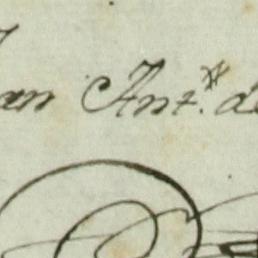 an Ant.º de